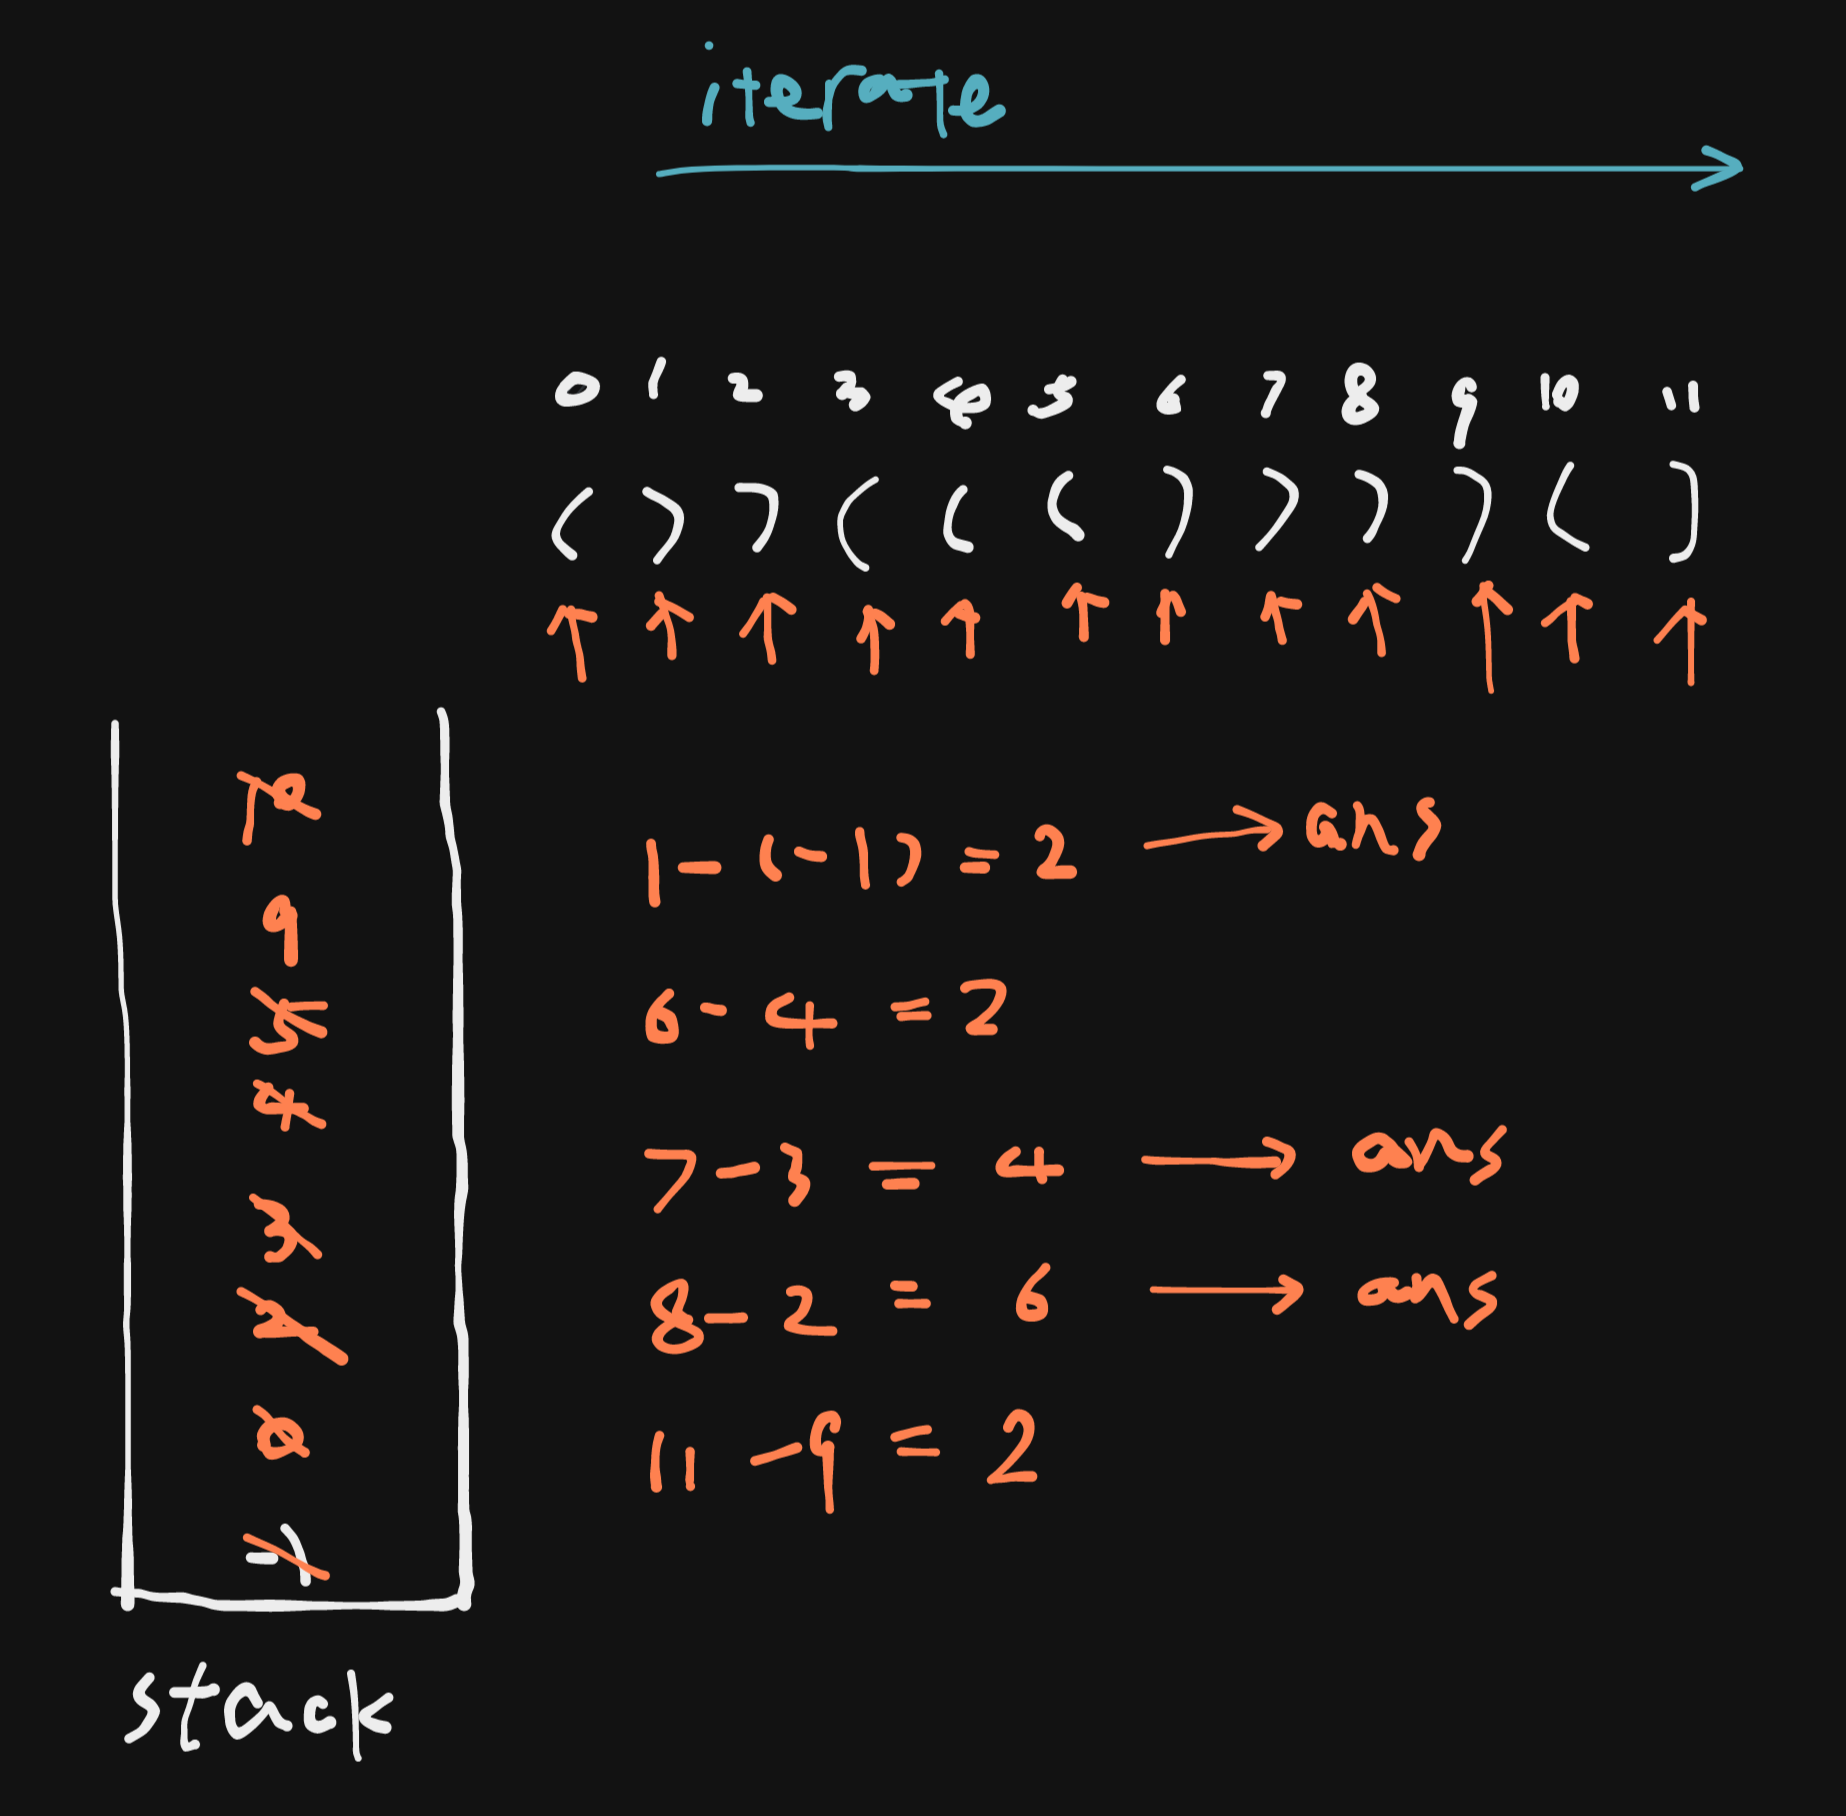 iterate
0 1 2 3 4 5 6 7 8 9 10 11
( ) ) ( ( ( ) ) ) ) ( )
10
9
5
4
3
2
0
-1
stack
1 - (-1) = 2 → ans
6 - 4 = 2
7 - 3 = 4 → ans
8 - 2 = 6 → ans
11 - 9 = 2